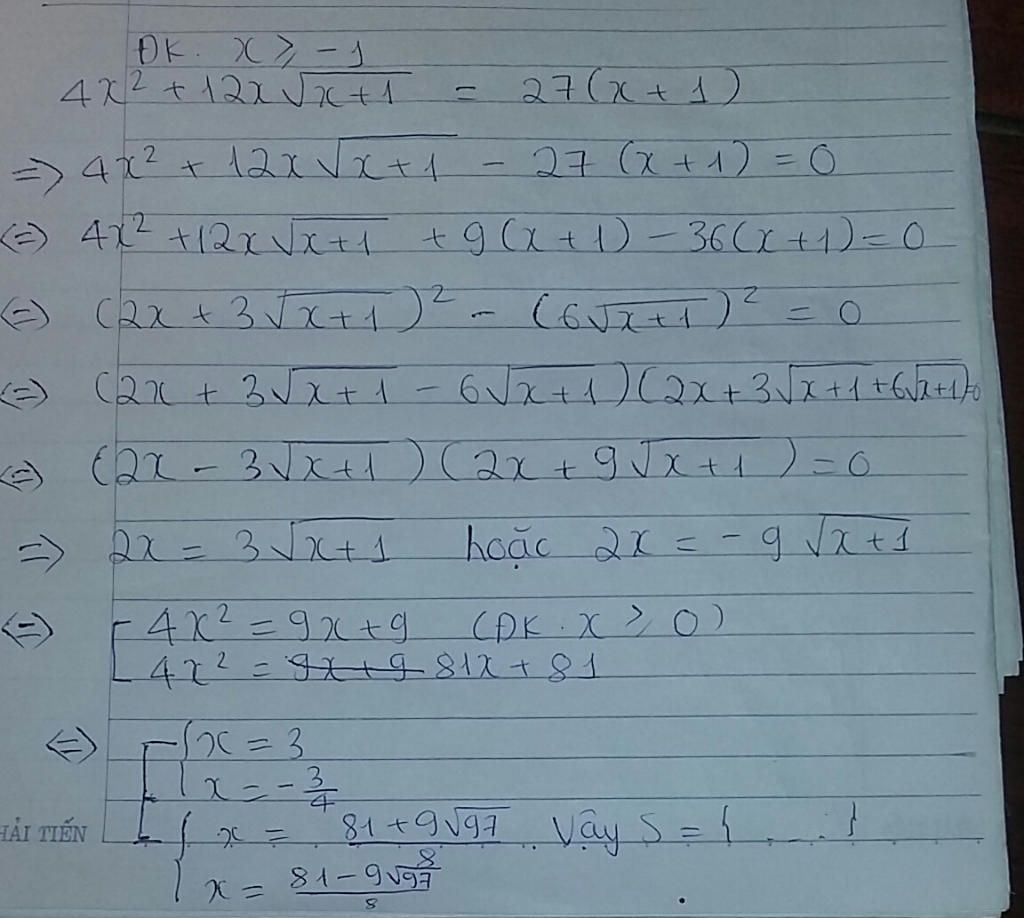 ĐK. x ⩾ -1
4x² + 12x√(x+1) = 27(x+1)
=> 4x² + 12x√(x+1) - 27(x+1) = 0
<=> 4x² + 12x√(x+1) + 9(x+1) - 36(x+1) = 0
<=> (2x + 3√(x+1))² - (6√(x+1))² = 0
<=> (2x + 3√(x+1) - 6√(x+1))(2x + 3√(x+1) + 6√(x+1)) = 0
<=> (2x - 3√(x+1))(2x + 9√(x+1)) = 0
=> 2x = 3√(x+1) hoặc 2x = -9√(x+1)
<=> [ 4x² = 9x + 9 (ĐK. x ⩾ 0)
4x² = 9x + 9 81x + 81
<=> [ { x = 3
x = -3/4
HẢI TIẾN { x = (81 + 9√97)/8 .. Vậy S = { .... }
x = (81 - 9√97)/8